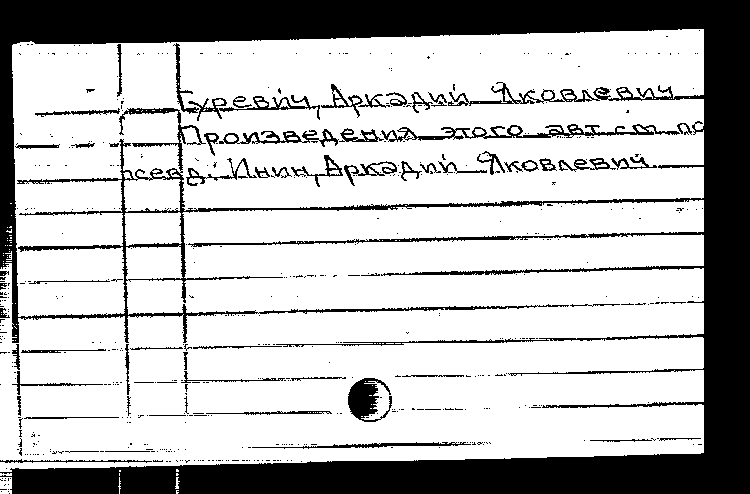 Гуревич, Аркадий Яковлевич
Произведения этого авт. см. по
псевд.: Инин, Аркадий Яковлевич